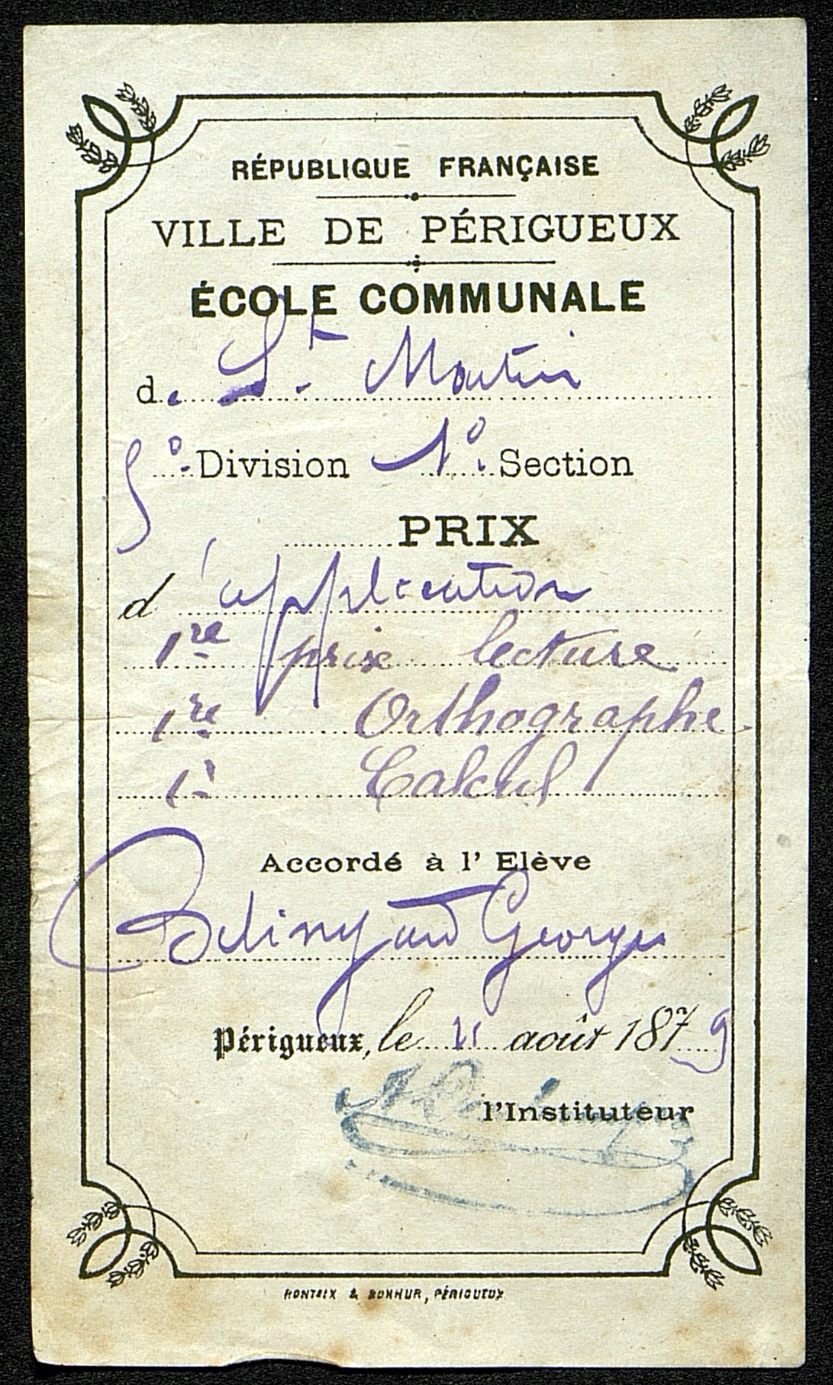 RÉPUBLIQUE FRANÇAISE
VILLE DE PÉRIGUEUX
ÉCOLE COMMUNALE
de St. Martin
5e. Division 1e. Section
PRIX
d'application
1re prix lecture
1re Orthographe
1r Calcul
Accordé à l' Elève
Georges
Périgueux, le 11 août 1879
l'Instituteur
RONTEIX & BONHUR, PÉRIGUEUX